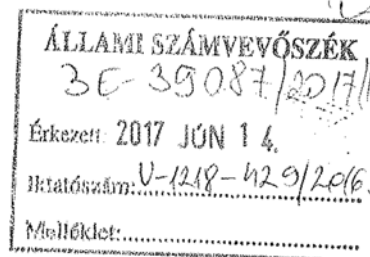 ÁLLAMI SZÁMVEVŐSZÉK
BE-39087/2017/1
Érkezett: 2017 JÚN 14.
Iktatószám: V-1218-429/2016.
Melléklet: